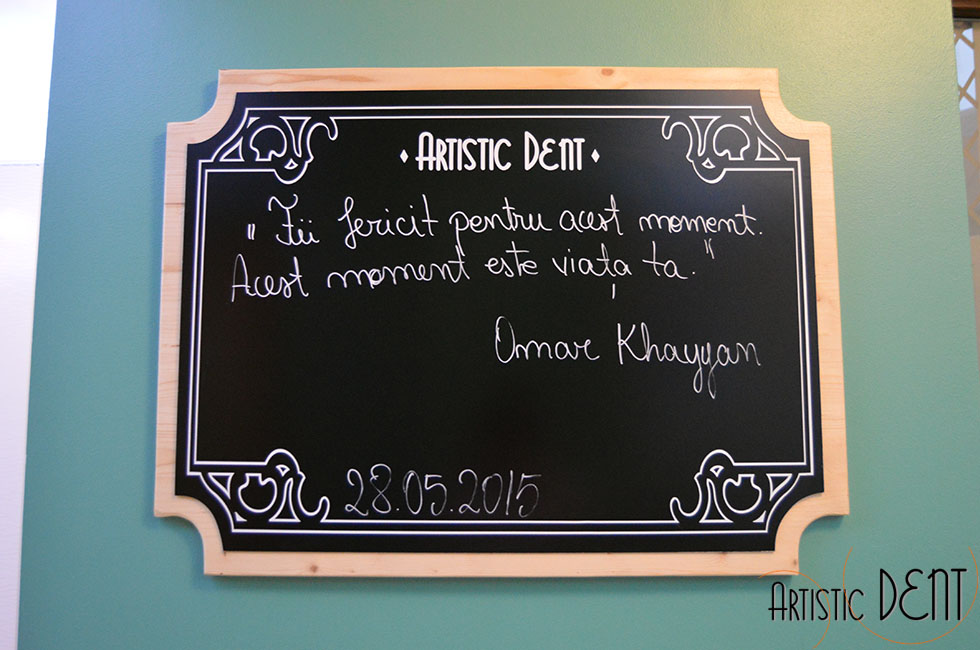 ARTISTIC DENT
"Fii fericit pentru acest moment.
Acest moment este viața ta."
Omar Khayyan
28.05.2015
ARTISTIC DENT